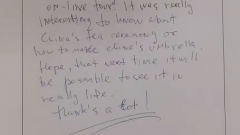 on-line tour! It was really
interesting to know about
China's tea ceremony or
how to make China's umbrella.
Hope, that next time it will
be possible to see it in
really life.
Thank's a lot!